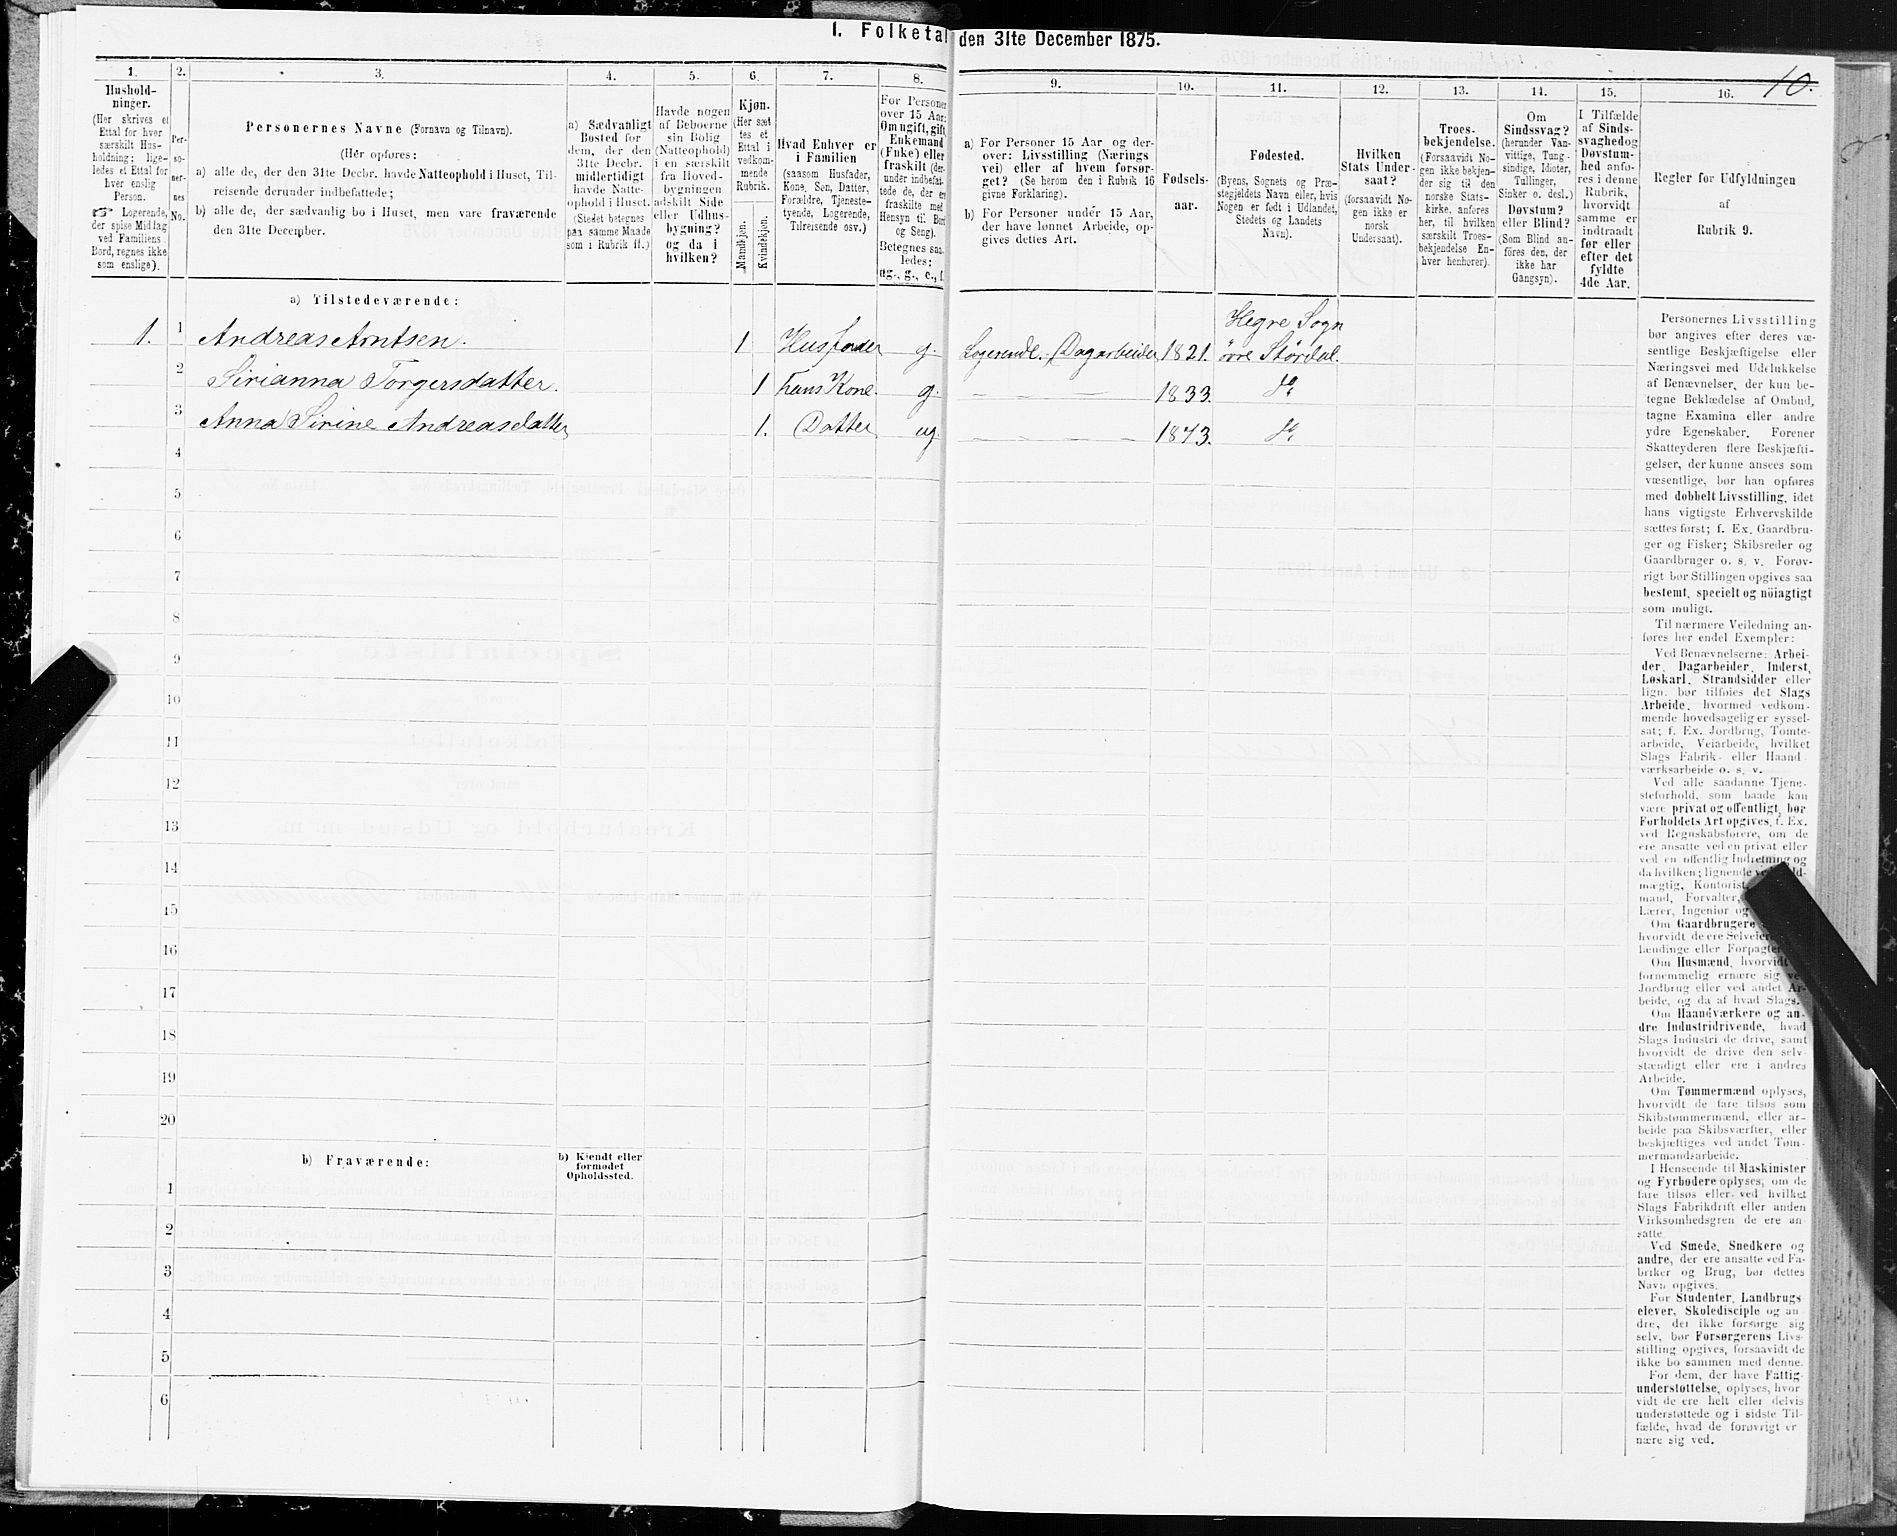 I. Folketal den 31te December 1875.
10.
1. 2. 3. 4. 5. 6. 7. 8. 9. 10. 11. 12. 13. 14. 15. 16.
Hushold-
ninger.
(Her skrives et
Ettal for hver
særskilt Hus-
holdning; lige-
ledes et Ettal for
hver enslig
Person.
☞ Logerende,
der spise Middag
ved Familiens
Bord, regnes ikke
som enslige).
Per-
so-
ner-
nes
No.
Personernes Navne (Fornavn og Tilnavn).
(Her opføres:
a) alle de, der den 31te Decbr. havde Natteophold i Huset, Til-
reisende derunder indbefattede;
b) alle de, der sædvanlig bo i Huset, men vare fraværende
den 31te December.
a) Sædvanligt
Bosted for
dem, der den
31te Decbr.
midlertidigt
havde Natte-
ophold i Huset.
(Stedet betegnes
paa samme Maade
som i Rubrik 11.)
Havde nogen
af Beboerne
sin Bolig
(Natteophold)
i en særskilt
fra Hoved-
bygningen
adskilt Side
eller Udhus-
bygning?
og da i
hvilken?
Kjøn.
(Her sæt
tes et
Ettal i
vedkom-
mende
Rubrik.
Mandkjøn.
Kvindekjøn.
Hvad Enhver er
i Familien
(saasom Husfader,
Kone, Søn, Datter,
Forældre, Tjeneste-
tyende, Logerende,
Tilreisende osv.)
For Personer
over 15 Aar:
Om ugift, gift,
Enkemand
(Enke) eller
fraskilt (der-
under indbefat-
tede de, der ere
fraskilte med
Hensyn til Bord
og Seng).
Betegnes saa-
ledes:
ug., g., e., f.
a) For Personer 15 Aar og der-
over: Livsstilling (Nærings
vei) eller af hvem forsør-
get? (Se herom den i Rubrik 16
givne Forklaring).
b) For Personer under 15 Aar,
der have lønnet Arbeide, op-
gives dettes Art.
Fødsels-
aar.
Fødested.
(Byens, Sognets og Præ-
stegjeldets Navn eller, hvis
Nogen er født i Udlandet,
Stedets og Landets
Navn).
Hvilken
Stats Under-
saat?
(forsaavidt No-
gen ikke er
norsk
Undersaat).
Troes-
bekjendelse.
(Forsaavidt No-
gen ikke bekjen-
der sig til den
norske Stats-
kirke, anføres
her, til hvilken
særskilt Troes-
bekjendelse En-
hver henhører).
Om
Sindssvag?
(herunder Van-
vittige, Tung-
sindige, Idioter,
Tullinger,
Sinker o. desl.)
Døvstum?
eller Blind?
(Som Blind an-
føres den, der
ikke har
Gangsyn).
I Tilfælde
af Sinds-
svaghed og
Døvstum-
hed anfø-
res i denne
Rubrik,
hvorvidt
samme er
indtraadt
før eller
efter det
fyldte
4de Aar.
Regler for Udfyldningen
af
Rubrik 9.
a) Tilstedeværende:
Hegre Sogn
1. 1 Andreas Arntsen. 1 Husfader g. Logerende. Dagarbeider 1821. øvre Størdal.
2 Sirianna Torgersdatter. 1 hans Kone. g. — — — 1833. do
3 Anna Sirine Andreasdatter 1. Datter ug. — — — 1873. do
4
5
6
7
8
9
10
11
12
13
14
15
16
17
18
19
20
b) Fraværende:
b) Kjendt eller
formodet
Opholdssted.
1
2
3
4
5
6
Personernes Livsstilling
bør angives efter deres væ-
sentlige Beskjæftigelse eller
Næringsvei med Udelukkelse
af Benævnelser, der kun be-
tegne Beklædelse af Ombud,
tagne Examina eller andre
ydre Egenskaber. Forener
Skatteyderen flere Beskjæfti-
gelser, der kunne ansees som
væsentlige, bør han opføres
med dobbelt Livsstilling, idet
hans vigtigste Erhvervskilde
sættes først; f. Ex. Gaardbru-
ger og Fisker; Skibsreder og
Gaardbruger o. s. v. Forøv-
rigt bør Stillingen opgives saa
bestemt, specielt og nøiagtigt
som muligt.
Til nærmere Veiledning an-
føres her endel Exempler:
Ved Benævnelserne: Arbei-
der, Dagarbeider, Inderst,
Løskarl, Strandsidder eller
lign. bør tilføies det Slags
Arbeide, hvormed vedkom-
mende hovedsagelig er syssel-
sat; f. Ex. Jordbrug, Tomte-
arbeide, Veiarbeide, hvilket
Slags Fabrik- eller Haand-
værksarbeide o. s. v.
Ved alle saadanne Tjene-
steforhold, som baade kan
være privat og offentligt, bør
Forholdets Art opgives, f. Ex.
ved Regnskabsførere, om de
ere ansatte ved en privat eller
ved en offentlig Indretning og
da hvilken; lignende ved
mægtig, Kontorist,
mand, Forvalter,
Lærer, Ingeniør og
Om Gaardbrugere
hvorvidt de ere Selveiere
lændinge eller Forpagter
Om Husmænd, hvorvidt
fornemmelig ernære sig
Jordbrug eller ved andet Ar-
beide, og da af hvad Slags.
Om Haandværkere og an-
dre Industridrivende, hvad
Slags Industri de drive, samt
hvorvidt de drive den selv-
stændigt eller ere i andres
Arbeide.
Om Tømmermænd oplyses,
hvorvidt de fare tilsøs som
Skibstømmermænd, eller ar-
beide paa Skibsværfter, eller
beskjæftiges ved andet Tøm-
mermandsarbeide.
I Henseende til Maskinister
og Fyrbødere oplyses, om de
fare tilsøs eller ved hvilket
Slags Fabrikdrift eller anden
Virksomhedsgren de ere an-
satte.
Ved Smede, Snedkere og
andre, der ere ansatte ved Fa-
briker og Brug, bør dettes
Navn opgives.
For Studenter, Landbrugs-
elever, Skoledisciple og an-
dre, der ikke forsørge sig
selv, bør Forsørgerens Livs-
stilling opgives, forsaavidt de
ikke bo sammen med denne.
For dem, der have Fattig-
understøttelse, oplyses, hvor-
vidt de ere helt eller delvis
understøttede og i sidste Til-
fælde, hvad de forøvrigt er-
nære sig ved.